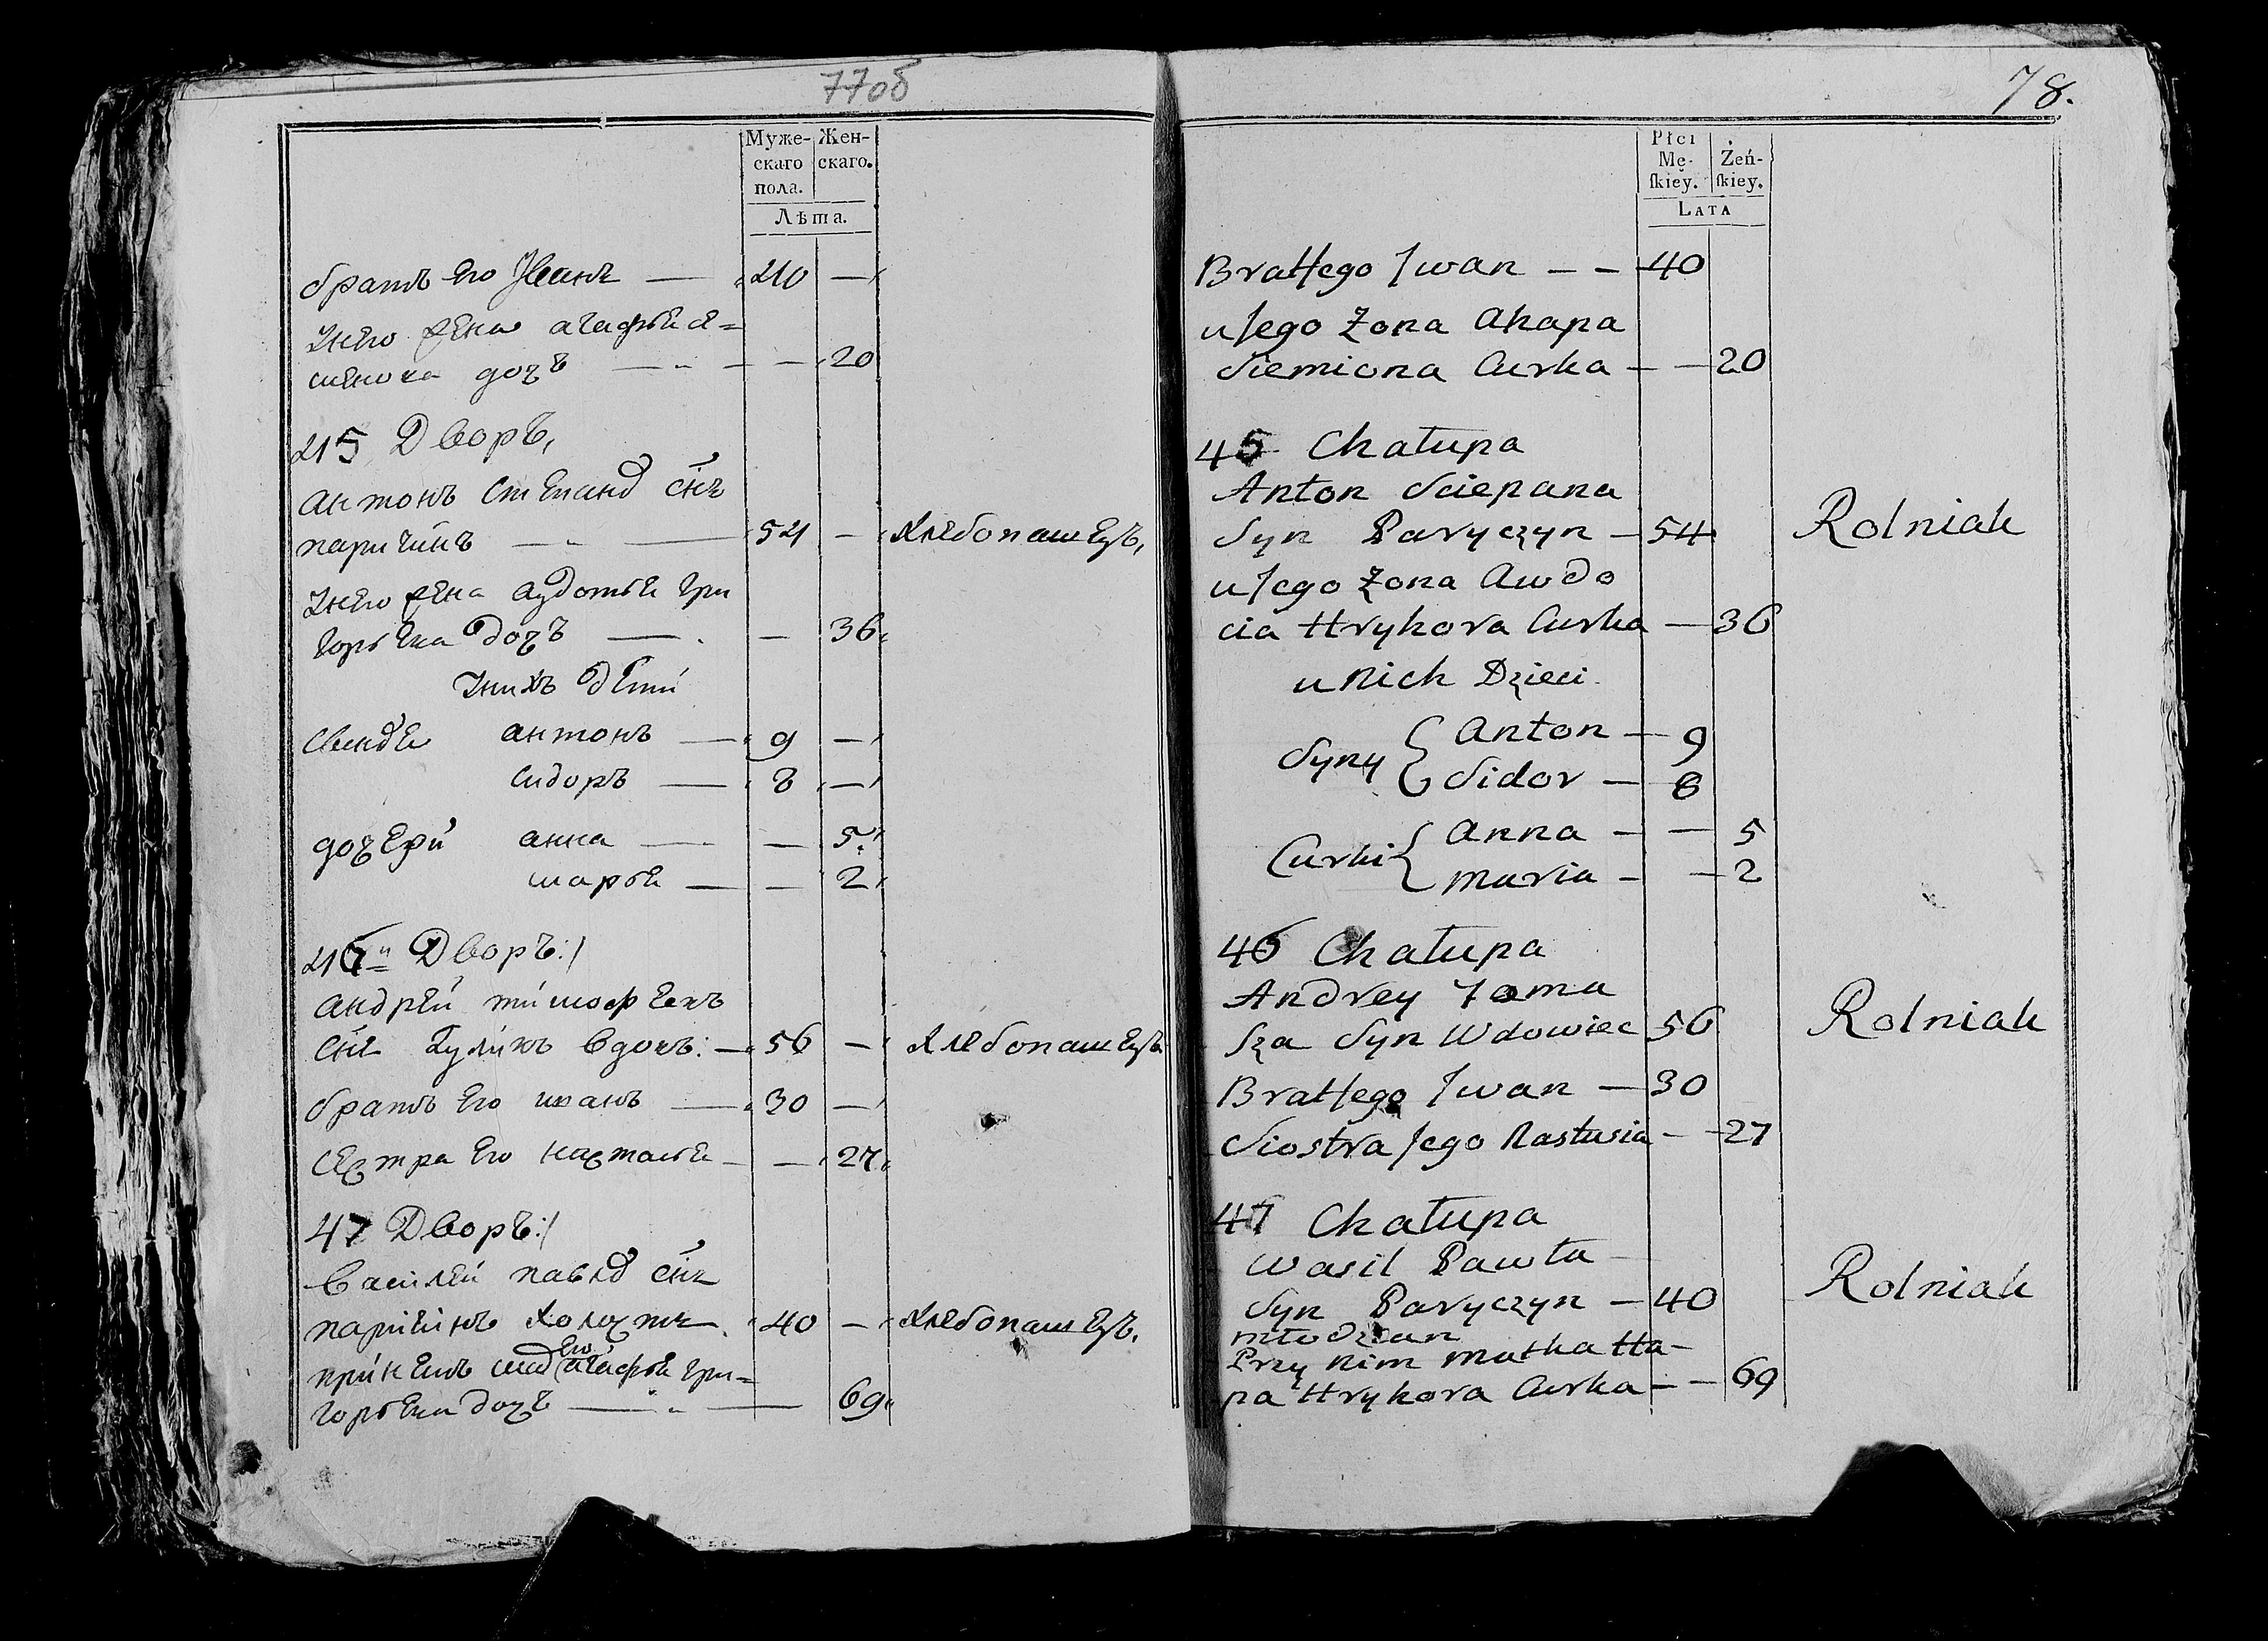 77об
Муже- Жен-
скаго скаго.
пола.
Лѣта.
братъ его Иванъ — 40 —
У него жена агафья се=
менова дочь — — 20
45 Дворъ,
антонъ Степановъ снъ
паричинъ — 54 — хлебопашецъ,
У него жена авдотья гри
горьева дочь — — 36
У нихъ дети
Сыновья антонъ — 9 —
Сидоръ — 8 —
дочери анна — — 5
марья — — 2
46й Дворъ:/
андрей тимофеевъ
снъ Куликъ вдовъ: — 56 — хлебопашецъ
братъ его иванъ — 30 —
сестра его настасья — — 27
47 Дворъ:/
Василей павловъ снъ
паричинъ холостъ 40 — хлебопашецъ,
при немъ мать его агафья гри=
горьева дочь — — 69
78.
Płci
Mę- Żeń-
ſkiey. ſkiey.
LATA
Brat Jego Iwan — — 40
u Jego Żona Ahapa
Siemiona Curka — — 20
45 Chałupa
Anton Sciepana
Syn Paryczyn — 54 Rolnik
u Jego Żona Awdo
cia Hryhora Curka — 36
u Nich Dzieci
Syny { Anton — 9
Sidor — 8
Curki { Anna — — 5
Maria — — 2
46 Chałupa
Andrey Tama
sza Syn Wdowiec 56 Rolnik
Brat Jego Iwan — 30
Siostra Jego Nastusia — — 27
47 Chałupa
Wasil Pawła
Syn Paryczyn — 40 Rolnik
młodzian
Przy Nim Matka Ha-
pa Hryhora Curka — — 69